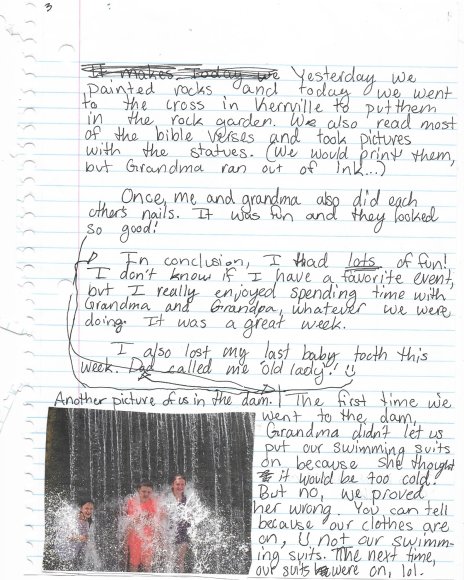 3
It makes Today we Yesterday we
painted rocks and today we went
to the cross in Kerrville to put them
in the rock garden. We also read most
of the bible verses and took pictures
with the statues. (We would print them,
but Grandma ran out of Ink...)
Once, me and grandma also did each
others nails. It was fun and they looked
so good!
In conclusion, I had lots of fun!
I don't know if I have a favorite event,
but I really enjoyed spending time with
Grandma and Grandpa, whatever we were
doing. It was a great week.
I also lost my last baby tooth this
week. Dad called me "old lady".
Another picture of us in the dam.
The first time we
went to the dam,
Grandma didn't let us
put our swimming suits
on because she thought
it would be too cold.
But no, we proved
her wrong. You can tell
because our clothes are
on, U not our swimm-
ing suits. The next time,
our suits were on, lol.